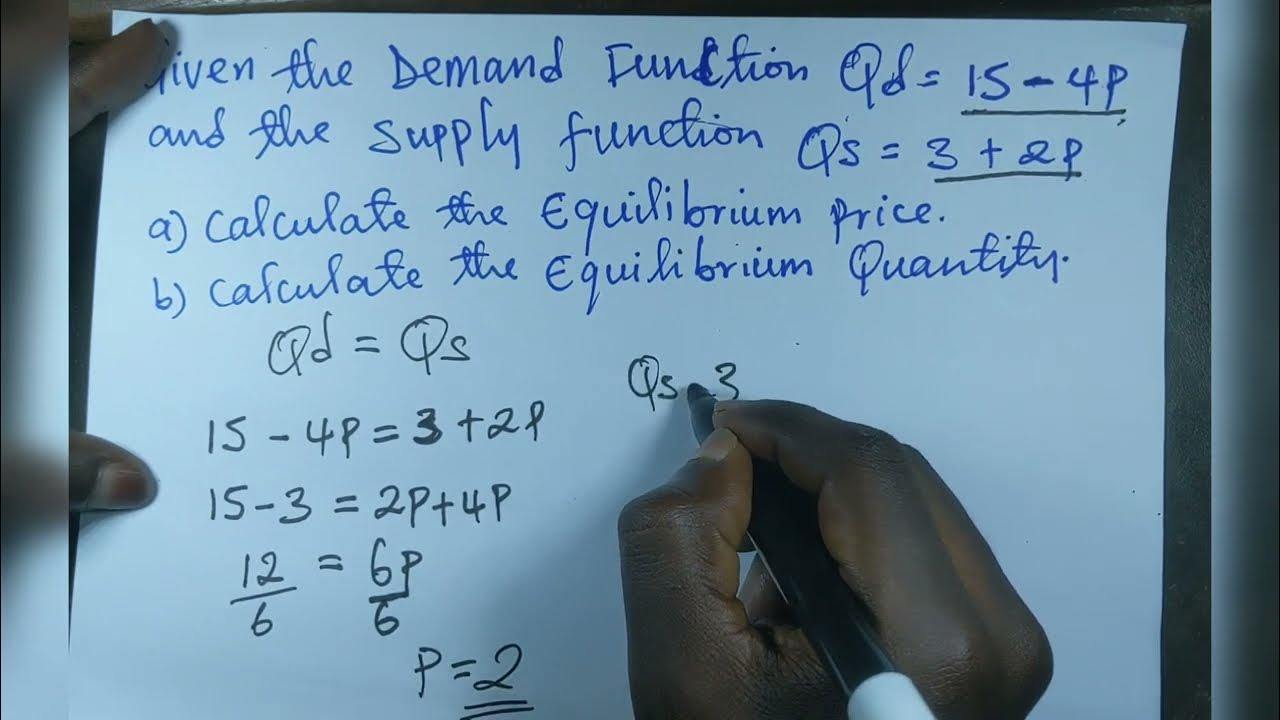 Given the Demand Function Qd = 15 - 4P
and the supply function Qs = 3 + 2P
a) Calculate the Equilibrium price.
b) Calculate the Equilibrium Quantity.
Qd = Qs
15 - 4P = 3 + 2P
15 - 3 = 2P + 4P
12/6 = 6P/6
P = 2
Qs 3